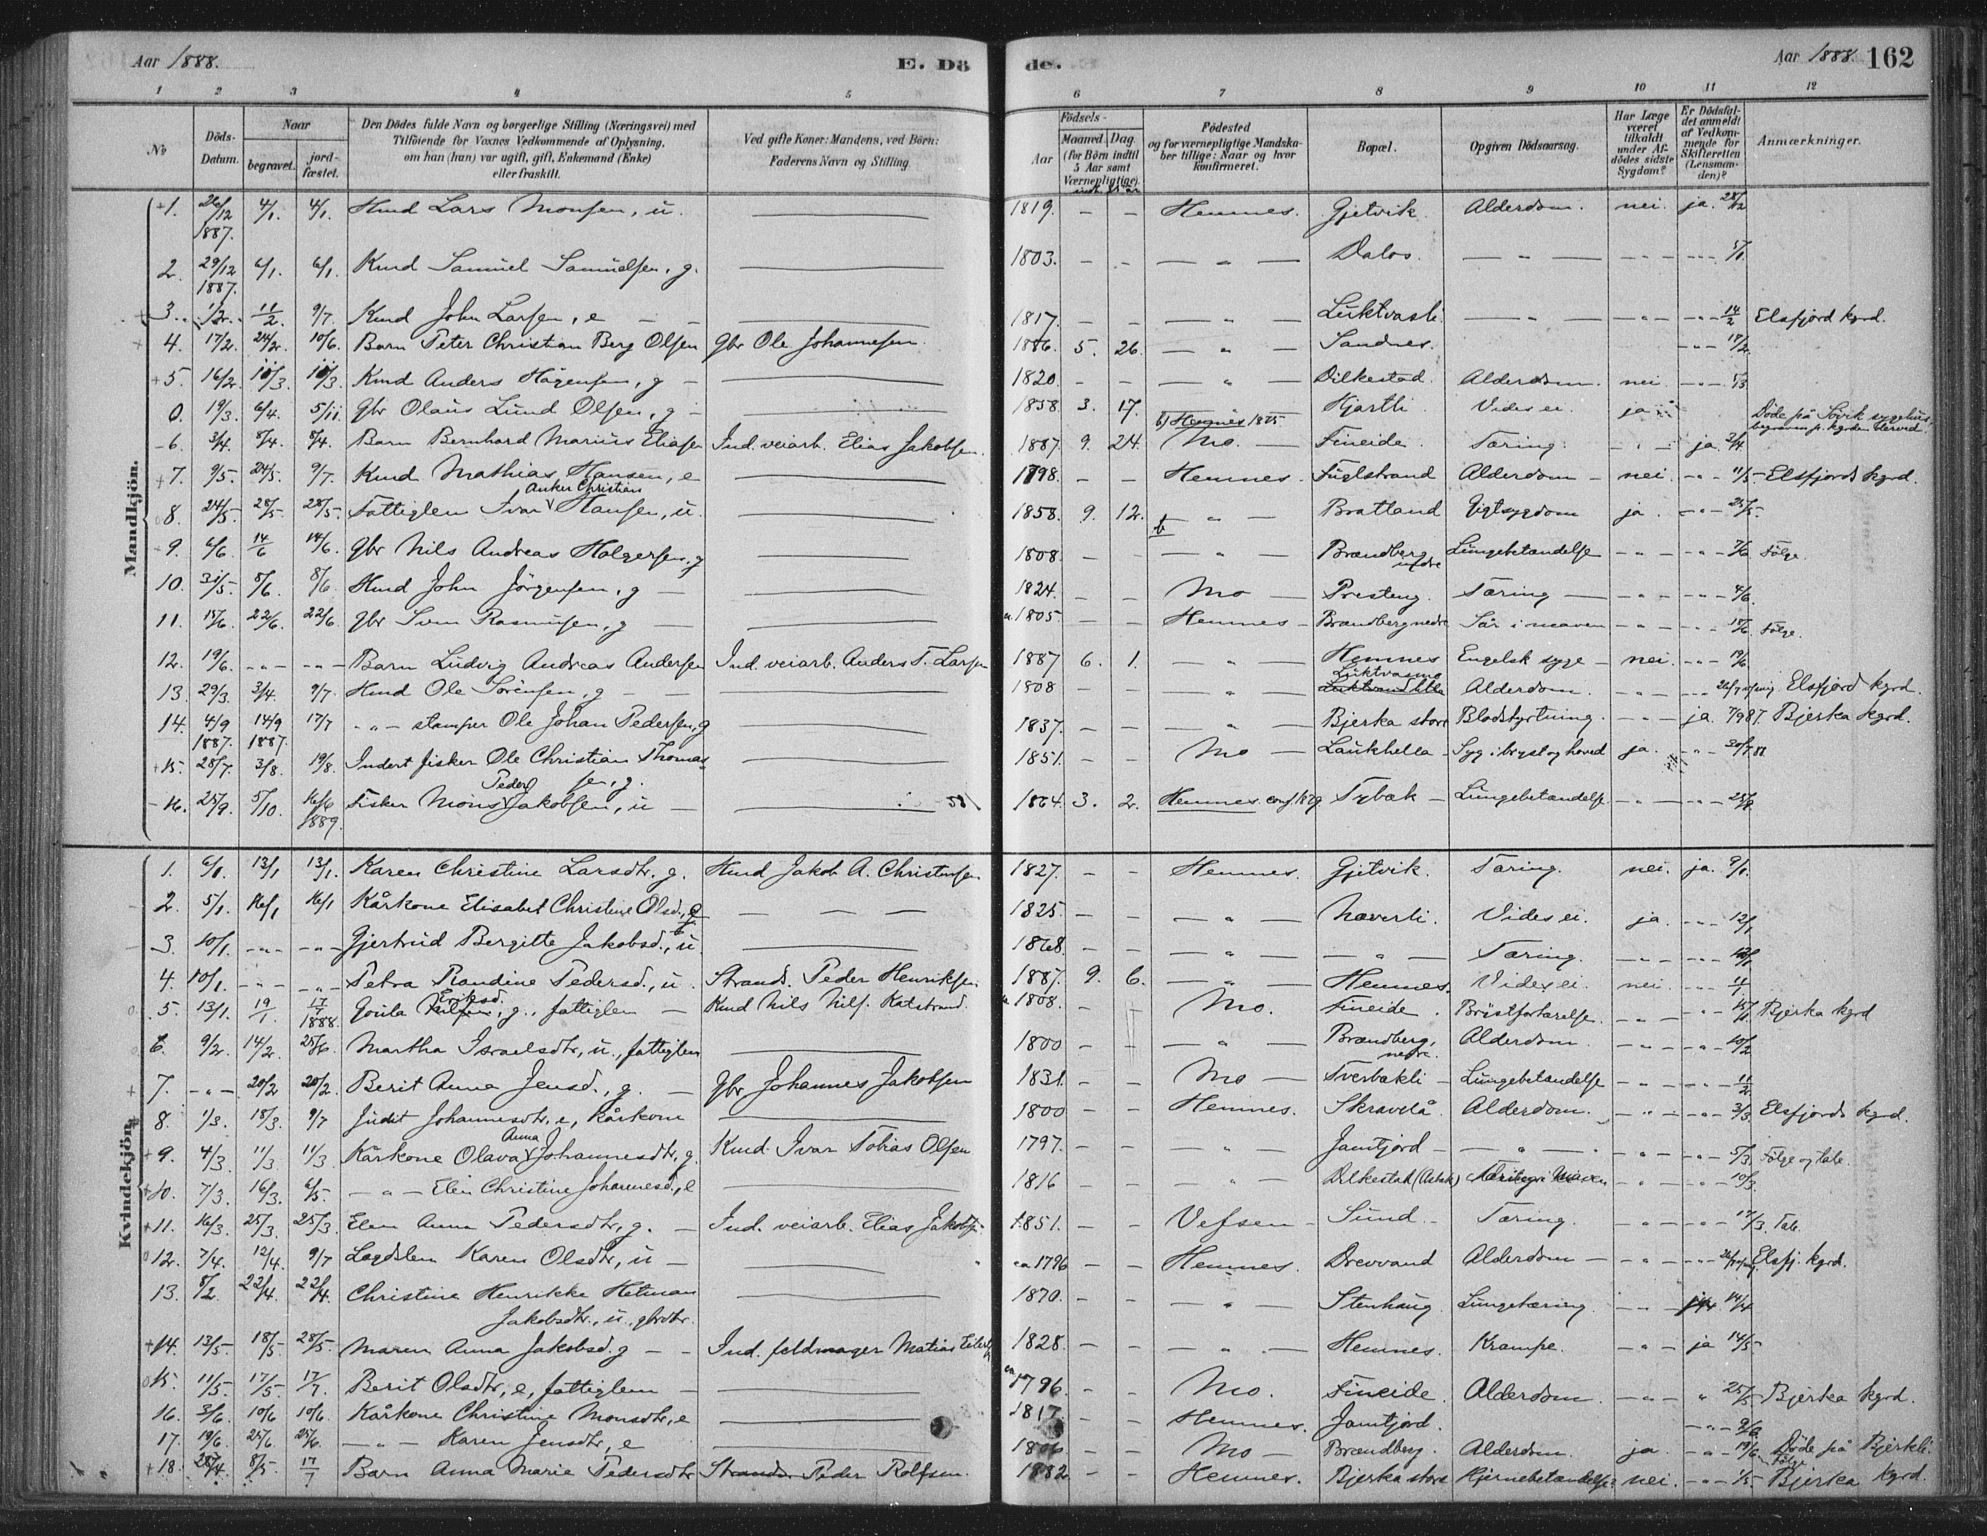 Aar 1888. E. Dö de. Aar 1888. 162
1 2 3 4 5 6 7 8 9 10 11 12
No Döds-Datum. Naar begravet. jordfæstet. Den Dödes fulde Navn og borgerlige Stilling (Næringsvei) med Tilföiende for Voxnes Vedkommende af Oplysning, om han (hun) var ugift, gift, Enkemand (Enke) eller fraskilt. Ved gifte Koner: Mandens, ved Börn: Faderens Navn og Stilling. Födsels- Aar Maaned. Dag. (for Börn indtil 5 Aar samt Værnepligtige). Födested og for værnepligtige Mandskaber tillige: Naar og hvor konfirmeret. Bopæl. Opgiven Dödsaarsag. Har Læge været tilkaldt under Afdödes sidste Sygdom? Er Dödsfaldet anmeldt af Vedkommende for Skifteretten (Lensmanden)? Anmærkninger.
Mandkjön.
1. 26/12 1887. 4/1. 4/1. Hmd Lars Monsen, u. 1819. - - Hemnes. Gjetvik. Alderdom. nei. ja. 28/12
2. 29/12 1887. 6/1. 6/1. Kmd Samuel Samuelsen, g. 1803. - - - " - Dalos. - " - 5/1
3. 1/2. 11/2. 9/7. Kmd John Larsen, e 1817. - - - " - Luktvasli. - " - 14/2 Elsfjord kgrd.
4. 17/2. 24/2. 10/6. Barn Peter Christian Berg Olsen Gbr Ole Johannesen. 1886. 5. 26. - " - Sandnes. 18/2
5. 16/2. 10/3. 10/3. Kmd Anders Hågensen, g 1820. - - - " - Dilkestad. Alderdom. nei. 5/3
0. 19/3. 6/4. 5/11. Gbr Olaus Lund Olsen, g 1858. 3. 17. b) Hemnes 1875 Kjartli. Vides ei. ja Döde på Sövik sygehus,
6. 3/4. 8/4. 8/4. Barn Bernhard Marius Eliasen Ind. veiarb. Elias Jakobsen. 1887. 9. 24. Mo. Fineide. Tæring. - " - ja. 3/4
7. 9/5. 24/5. 9/7. Kmd Mathias Hansen, e 1798. - - Hemnes. Fuglstrand Alderdom nei. 11/5 Elsfjords kgrd.
8. 24/5. 28/5. 28/5. Fattiglem Ivar Anker Christian Hansen, u. 1858. 9. 12. - " - Bratland Gigtsygdom ja. 25/5
9. 6/6. 14/6 14/6. Gbr Nils Andreas Holgersen, g 1808. - - - " - Brændberg nedre Lungebetændelse 7/6 Fölge.
10. 31/5. 8/6. 8/6. Hmd John Jörgensen, g 1824. - - Mo Presteng. Tæring 4/6.
11. 15/6. 22/6. 22/6. Gbr Sven Rasmusen, g 1805 - - Hemnes Brændberg nedre Sår i maven 18/6. Fölge.
12. 19/6. - " - - " - Barn Ludvig Andreas Andersen Ind. veiarb. Anders T. Larsen 1887 6. 1. " Hemnes Engelsk syge nei. 19/6
13. 29/3. 3/4. 9/7. Hmd Ole Sörensen, g 1808 - - " Luktvasmo Alderdom. Elsfjord kgrd.
14. 4/9 1887. 14/9 1887. 17/7 - " - stamper Ole Johan Pedersen, g 1837. - - " Bjerka store Blodstyrtning. ja. 7/9 87. Bjerka kgrd.
15. 28/7. 3/8. 19/8. Indert fisker Ole Christian Thomassen, g. 1851. - - Mo Laukhella Syg i bryst og hoved ja. 30/7 88
16. 25/9. 5/10. 16/6 1889. Fisker Mons Peder Jakobsen, u 1864. 3. 2. Hemnes. conf. 1879 Tybæk Lungebetændelse 28/9.
Kvindekjön.
1. 6/1. 13/1 13/1. Karen Christine Larsdtr. g. Hmd Jakob A. Christensen 1827. - - Hemnes. Gjetvik. Tæring. nei. ja. 9/1.
2. 5/1. 16/1 16/1 Kårkone Elisabet Christine Olsd., 1825 - - - " - Næverli. Vides ei. ja. 12/1
3. 10/1. - " - - " - Gjertrud Bergitte Jakobsd., u. 1868. - - - " - - " - Tæring.
4. 10/1. - " - - " - Petra Randine Pedersd., u. Strands. Peder Henriksen. 1887. 9. 6. - " - Hemnes. Vides ei. nei. 4/1
5. 13/1. 19/1 17/7 1888. Gjoula Eriksd., g., fattiglem Kmd Nils Nils. Ratstrand. 1808. - - Mo. Fineide. Bröstfortærelse. Bjerka kgrd
6. 9/2. 14/2. 25/6. Martha Israelsdtr, u., fattiglem 1800 - - - " - Brændberg, nedre. Alderdom. 10/2
7. - " - 20/2 20/2. Berit Anna Jensd., g. Gbr Johannes Jakobsen 1831. - - Mo Tverbakli Lungebetændelse 11/2
8. 1/3. 18/3. 9/7 Judit Johannesdtr, e, Kårkone 1800 - - Hemnes. Skravlå. Alderdom. 3/3. Elsfjords kgrd.
9. 4/3 11/3. 11/3 Kårkone Olava Anna Johannesdtr, g. Kmd. Ivar Tobias Olsen 1797. - - - " - Jamtjord - " - 5/3. Fölge og tale.
10. 7/3. 16/3. 6/5. - " - Elen Christine Johannesd., e 1816 - - " Dilkestad 10/3.
11. 16/3. 25/3. 25/3 Elen Anna Pedersdtr, g. Ind. veiarb. Elias Jakobsen. 1851. - - Vefsen Sund Tæring 17/3. Tale.
12. 7/4. 12/4. 9/7 Lægdslem Karen Olsdtr, u ca 1796 - - Hemnes. Drevvand Alderdom Elsfj. kgrd.
13. 8/2. 22/4. 22/4. Christine Henrikke Hetman Jakobsdtr., u., gbrdtr. 1870. - - - " - Stenhaug. Lungetæring. 14/4
14. 13/5. 18/5 28/5. Maren Anna Jakobsd. g Ind. feldmager Matias Eilertsen 1828. - - " Hemnes. Krampe. ja 14/5
15. 11/5. 17/5. 17/7. Berit Olsdtr, e, fattiglem 1796. - - Mo. Fineide. Alderdom. 25/5 Bjerka kgrd.
16. 3/6. 10/6 10/6. Kårkone Christine Monsdtr, e 1817. - - Hemnes. Jamtjord. 9/6
17. 19/6. 25/6. 25/6. - " - Karen Jensdtr, e 1806 - - Mo Brændberg. Alderdom. ja. 19/6 Döde på Bjerkli. Fölge
18. 28/4. 8/5. 17/7 Barn Anna Marie Pedersdtr Strands. Peder Rolfsen. 1882. - - Hemnes. Bjerka store Hjernebetændelse nei. 1/5. Bjerka kgrd.